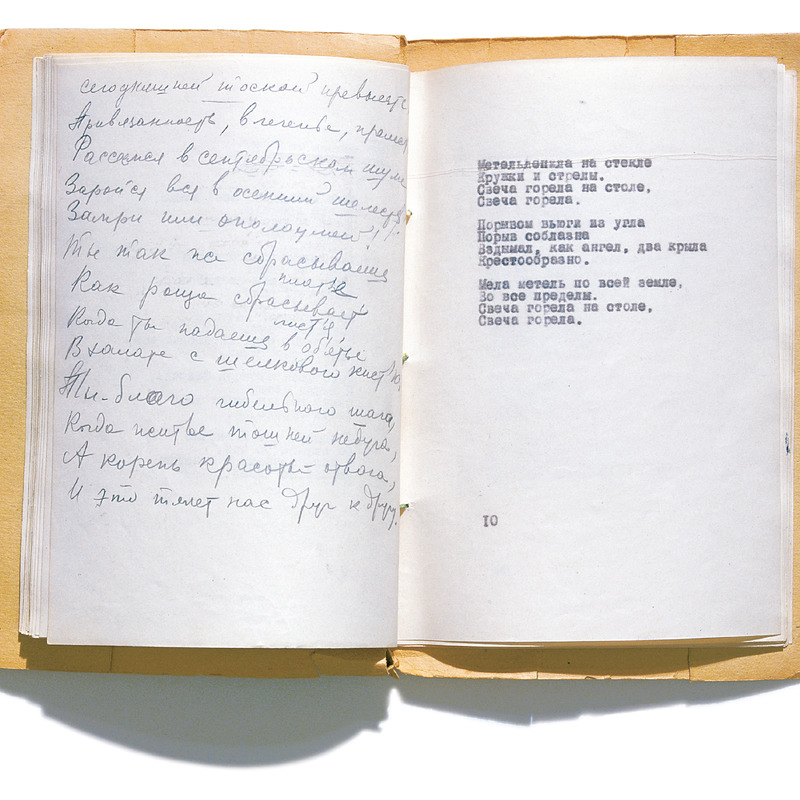 сегодняшней тоской превысьте
Привязанность, влеченье, прелес
Рассейся в сентябрьском шуме
Заройся вся в осенний шелест
Замри или ополоумей!
Ты так же сбрасываешь
платье
Как роща сбрасывает
листья
Когда ты падаешь в объятье
В халате с шелковою кистью,
Ты-благо гибельного шага,
Когда житье тошней недуга,
А корень красоты отвага,
И это тянет нас друг к другу.
Метельлепила на стекле
Кружки и стрелы.
Свеча горела на столе,
Свеча горела.
Порывом вьюги из угла
Порыв соблазна
Вздымал, как ангел, два крыла
Крестообразно.
Мела метель по всей земле,
Во все пределы.
Свеча горела на столе,
Свеча горела.
10